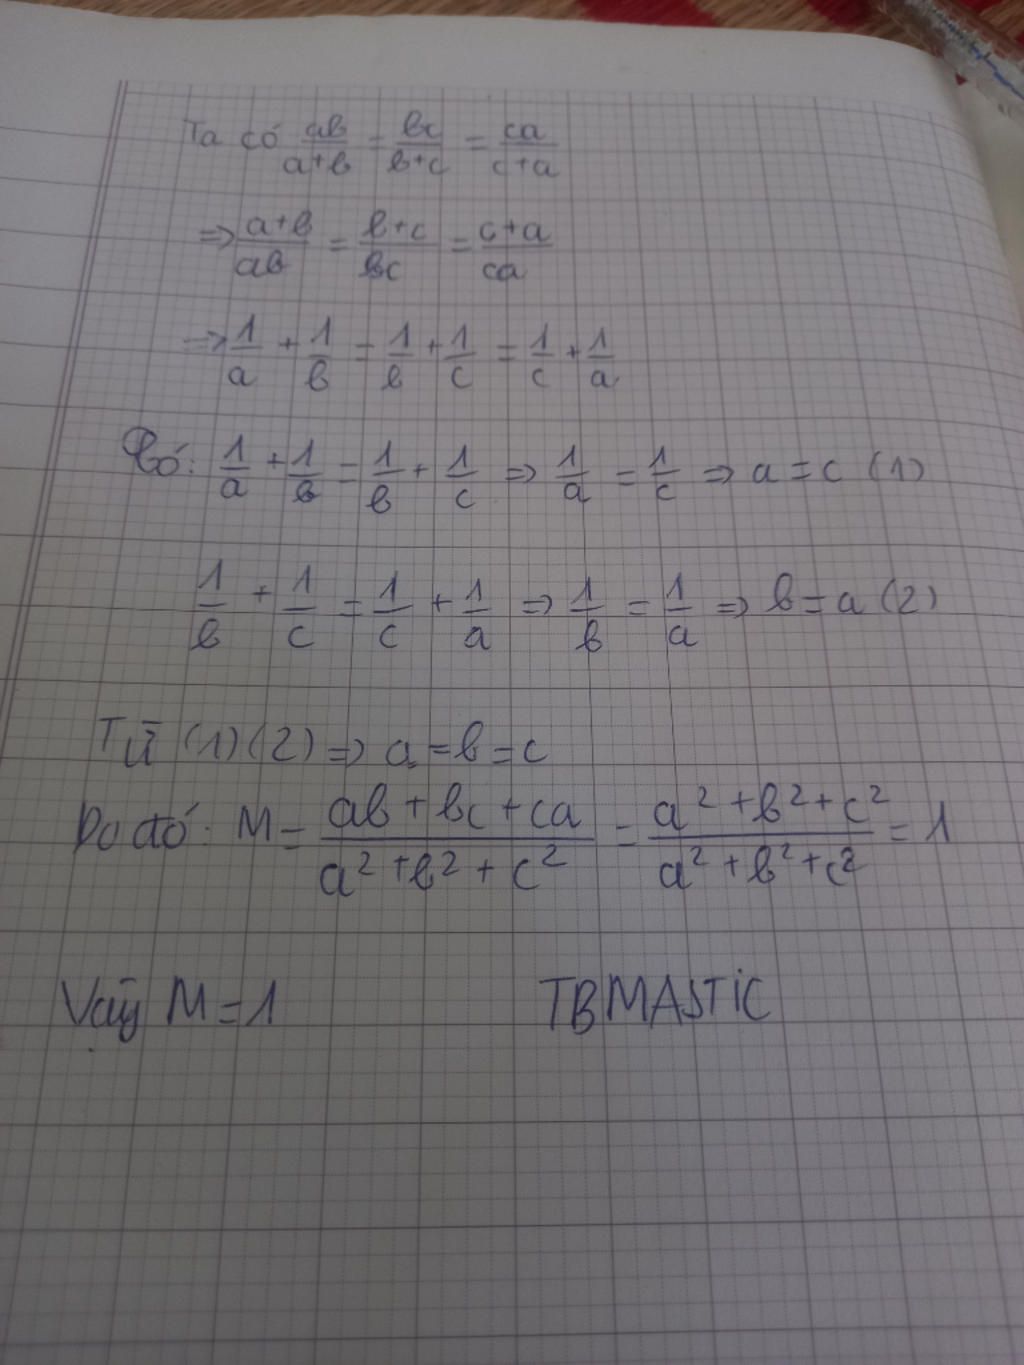 Ta có ab/a+b = bc/b+c = ca/c+a
=> a+b/ab = b+c/bc = c+a/ca
=> 1/a + 1/b = 1/b + 1/c = 1/c + 1/a
Có: 1/a + 1/b = 1/b + 1/c => 1/a = 1/c => a = c (1)
1/b + 1/c = 1/c + 1/a => 1/b = 1/a => b = a (2)
Từ (1)(2) => a = b = c
Do đó: M = ab + bc + ca/a² + b² + c² = a² + b² + c²/a² + b² + c² = 1
Vậy M = 1 TBMASTIC